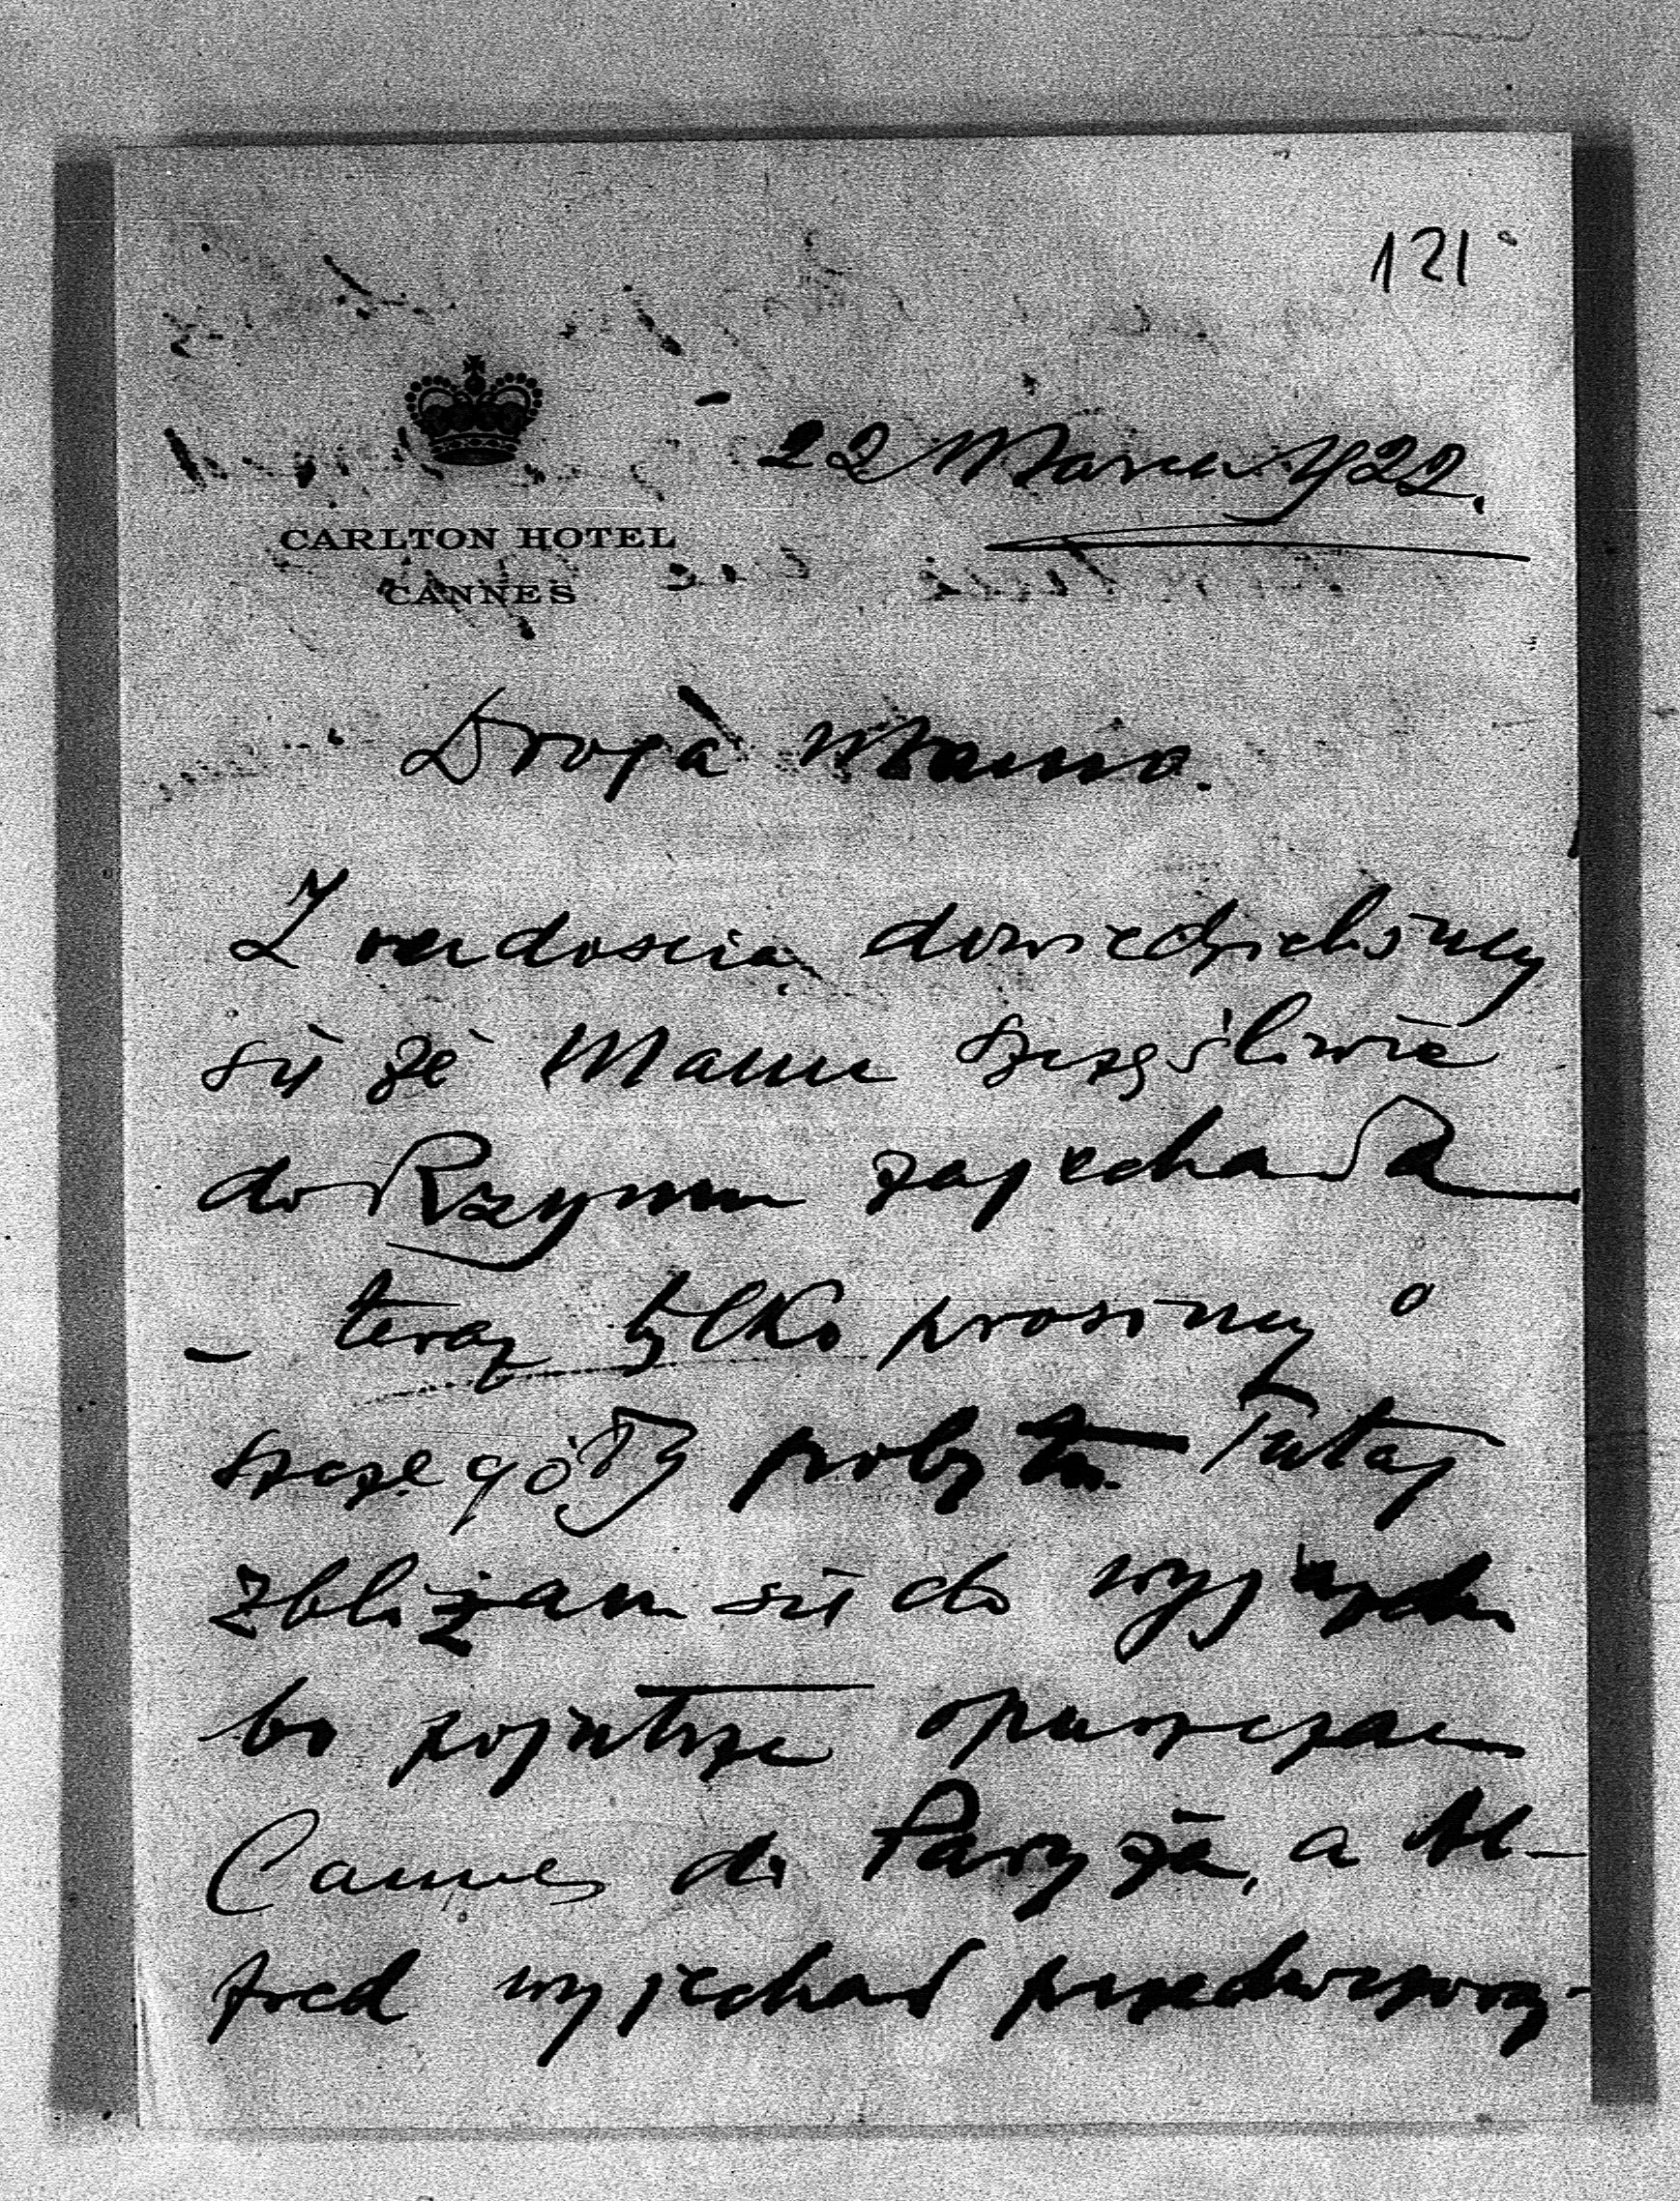 121
22 Marca 1922.
CARLTON HOTEL
CANNES
Droga Mamo.
Z radoscią dowiedzieliśmy
się że Mama szczęśliwie
do Rzymu zajechała
– teraz tylko prosimy o
szczegóły pobytu. Tutaj
zbliżam się do wyjazdu
bo pojutrze opuszczam
Cannes do Paryża, a Al-
fred wyjechał przedwczoraj-